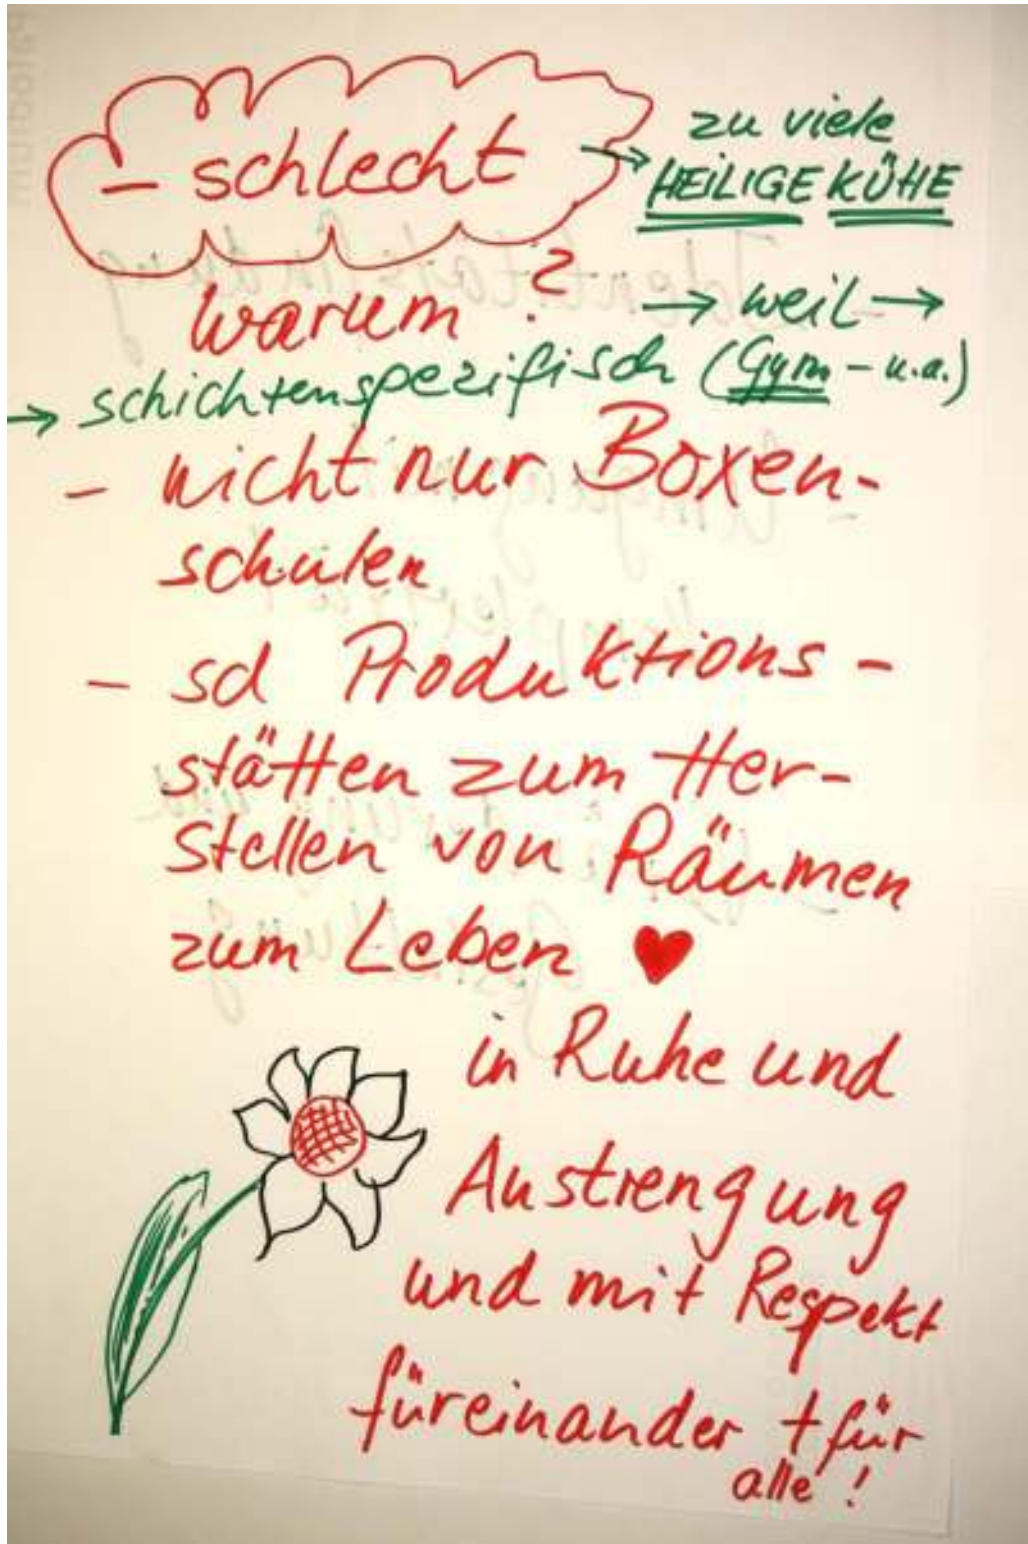 - schlecht → zu viele
HEILIGE KÜHE
warum? → weil →
→ schichtenspezifisch (Gym - u.a.)
- nicht nur Boxen-
schulen
- sd Produktions-
stätten zum Her-
stellen von Räumen
zum Leben ♥
in Ruhe und
Anstrengung
und mit Respekt
füreinander + für
alle!